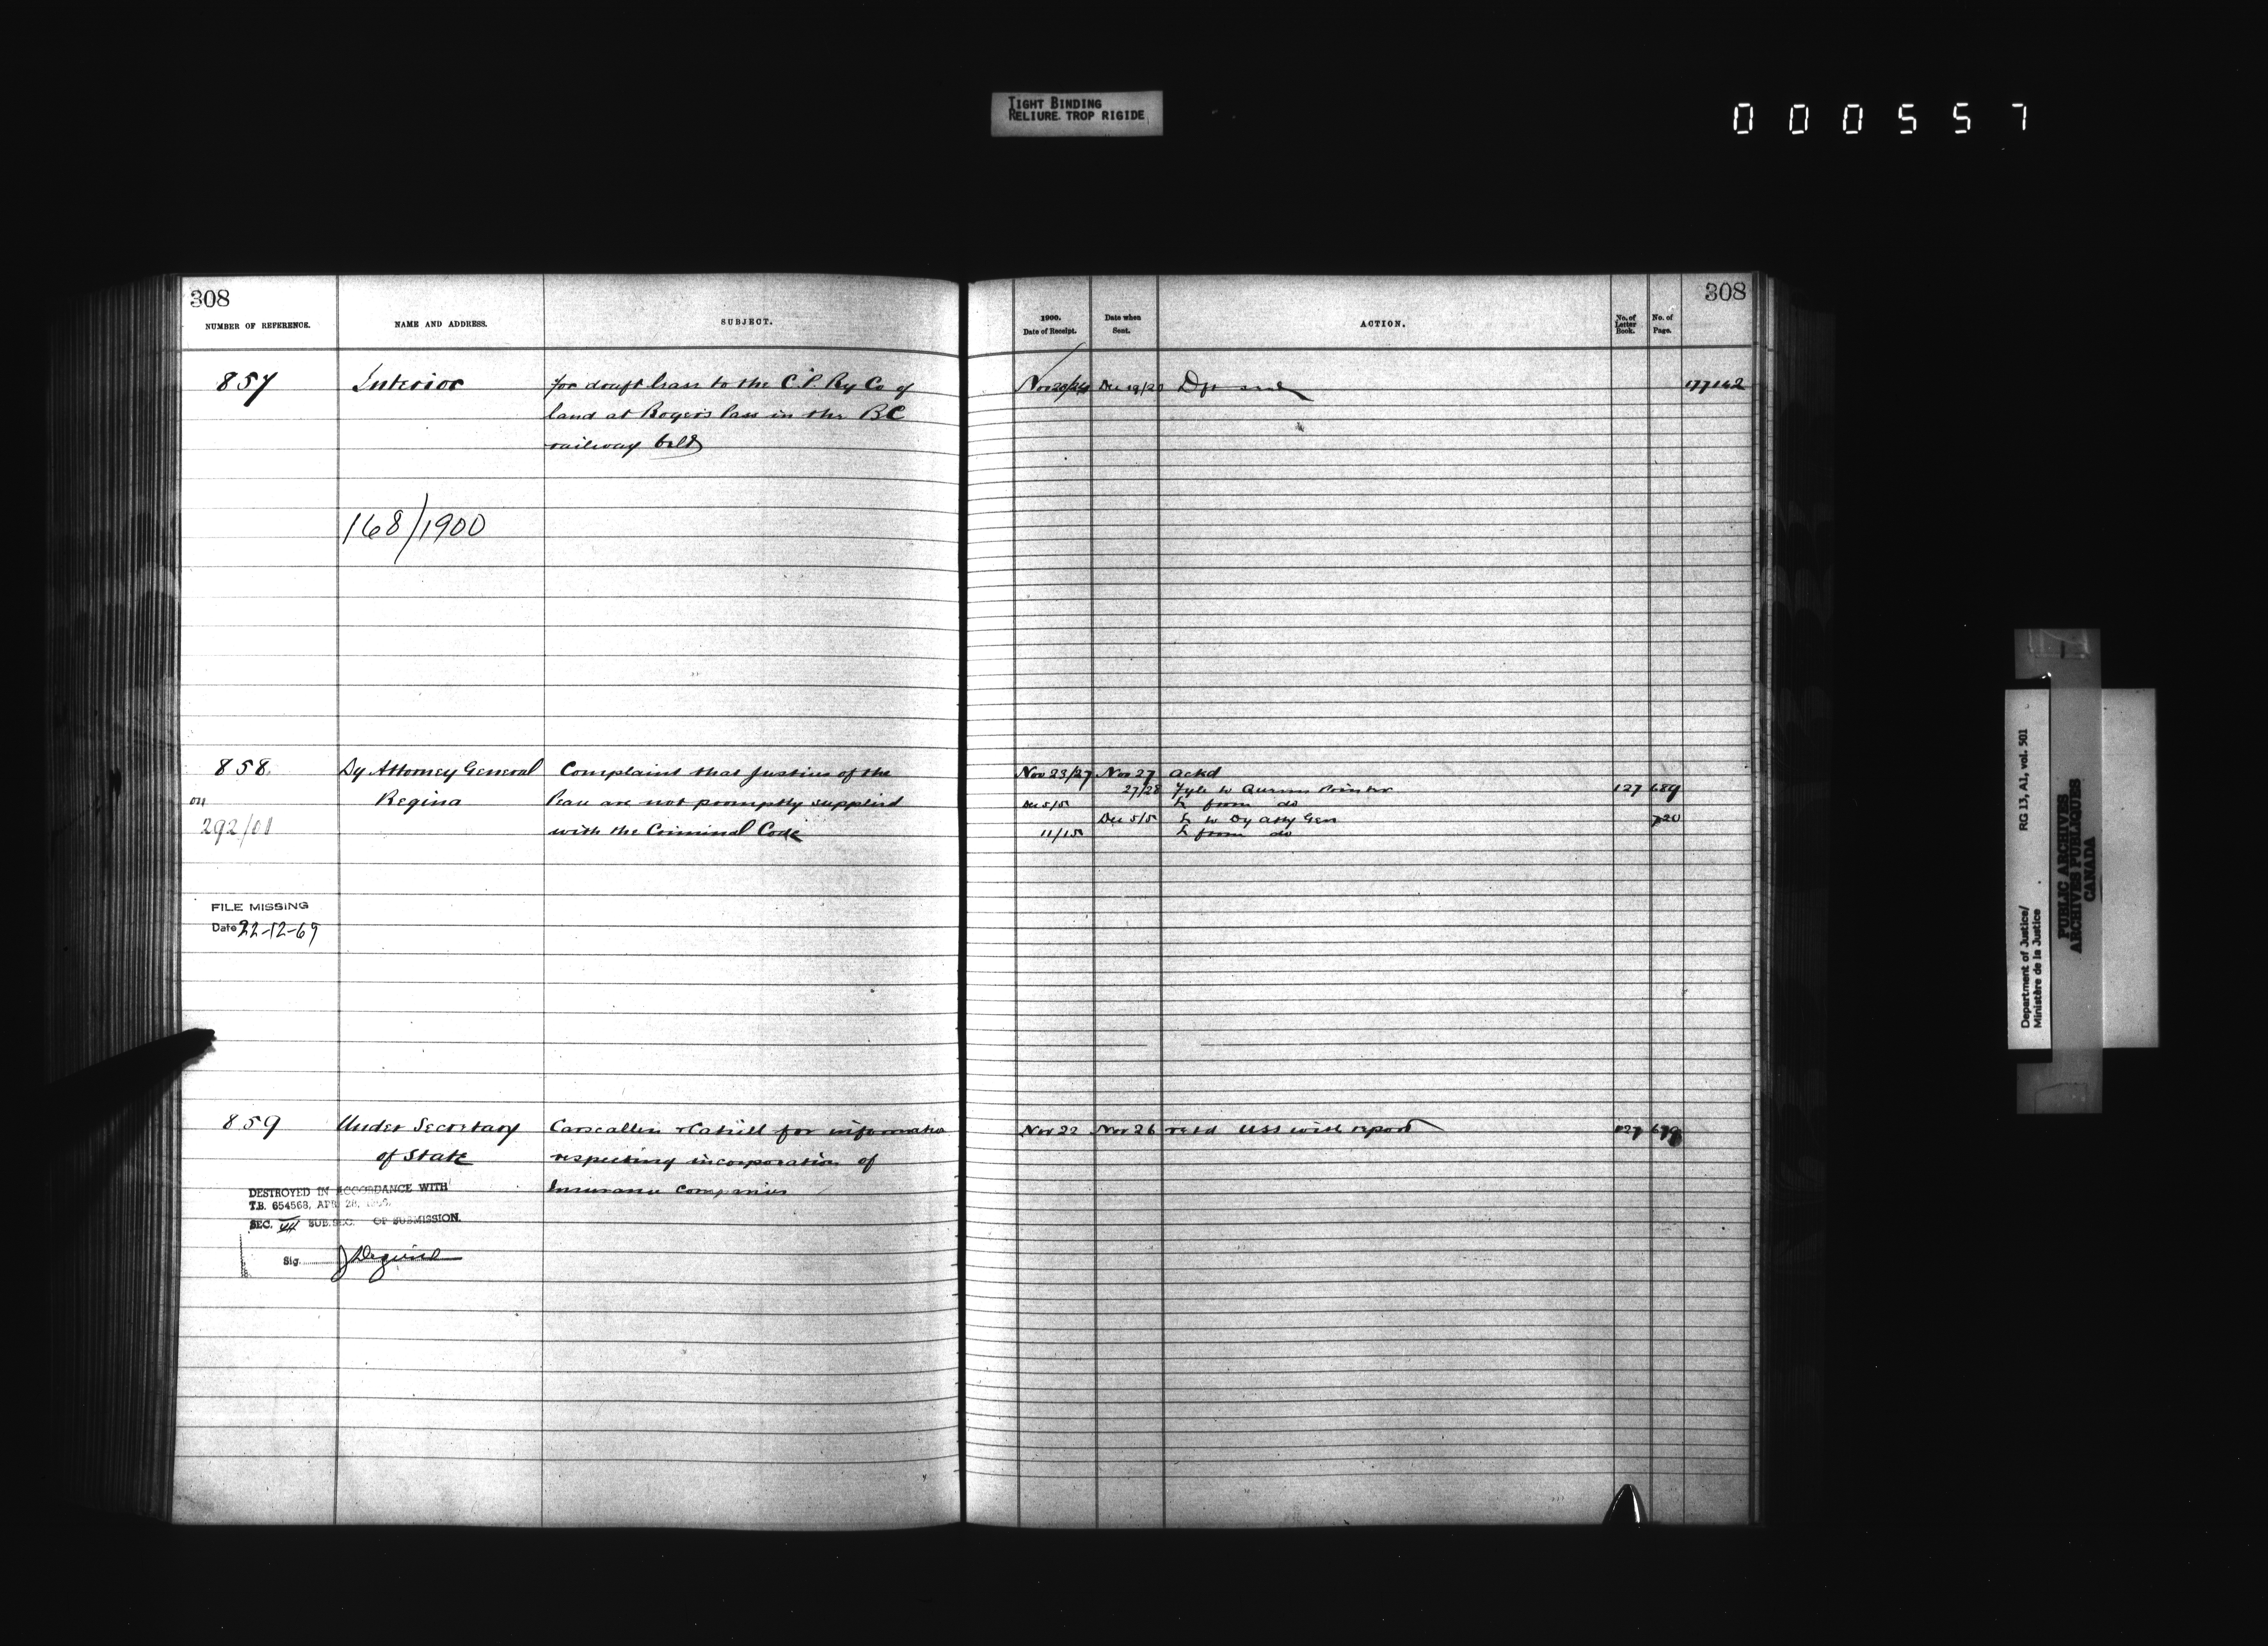 TIGHT BINDING
RELIURE TROP RIGIDE
000557
308
NUMBER OF REFERENCE.
NAME AND ADDRESS.
SUBJECT.
857
Interior
for draft lease to the C.P. Ry Co of
land at Rogers Pass in the BC
railway belt
168/1900
858
on
292/01
Dy Attorney General
Regina
Complaint that Justices of the
Peace are not promptly supplied
with the Criminal Code
FILE MISSING
Date 22-12-69
859
Under Secretary
of State
Carscallen & Cahill for information
respecting incorporation of
Insurance Companies
DESTROYED IN ACCORDANCE WITH
T.B. 654568, APR 28,
SEC. VII SUB.SEC. OF SUBMISSION.
Sig.
308
1900.
Date of Receipt.
Date when
Sent.
ACTION.
No. of
Letter
Book.
No. of
Page.
Nov 20/24 Dec 19/20 177142
Nov 23/27 Nov 27 ackd
27/28 Fyle to Queens Printer 127 689
Dec 5/5 L from do
Dec 5/5 L to Dy Atty Gen 720
11/15 L from do
Nov 22 Nov 26 retd USS with report 127
Department of Justice/
Ministère de la Justice
RG 13, A1, vol. 501
PUBLIC ARCHIVES
ARCHIVES PUBLIQUES
CANADA